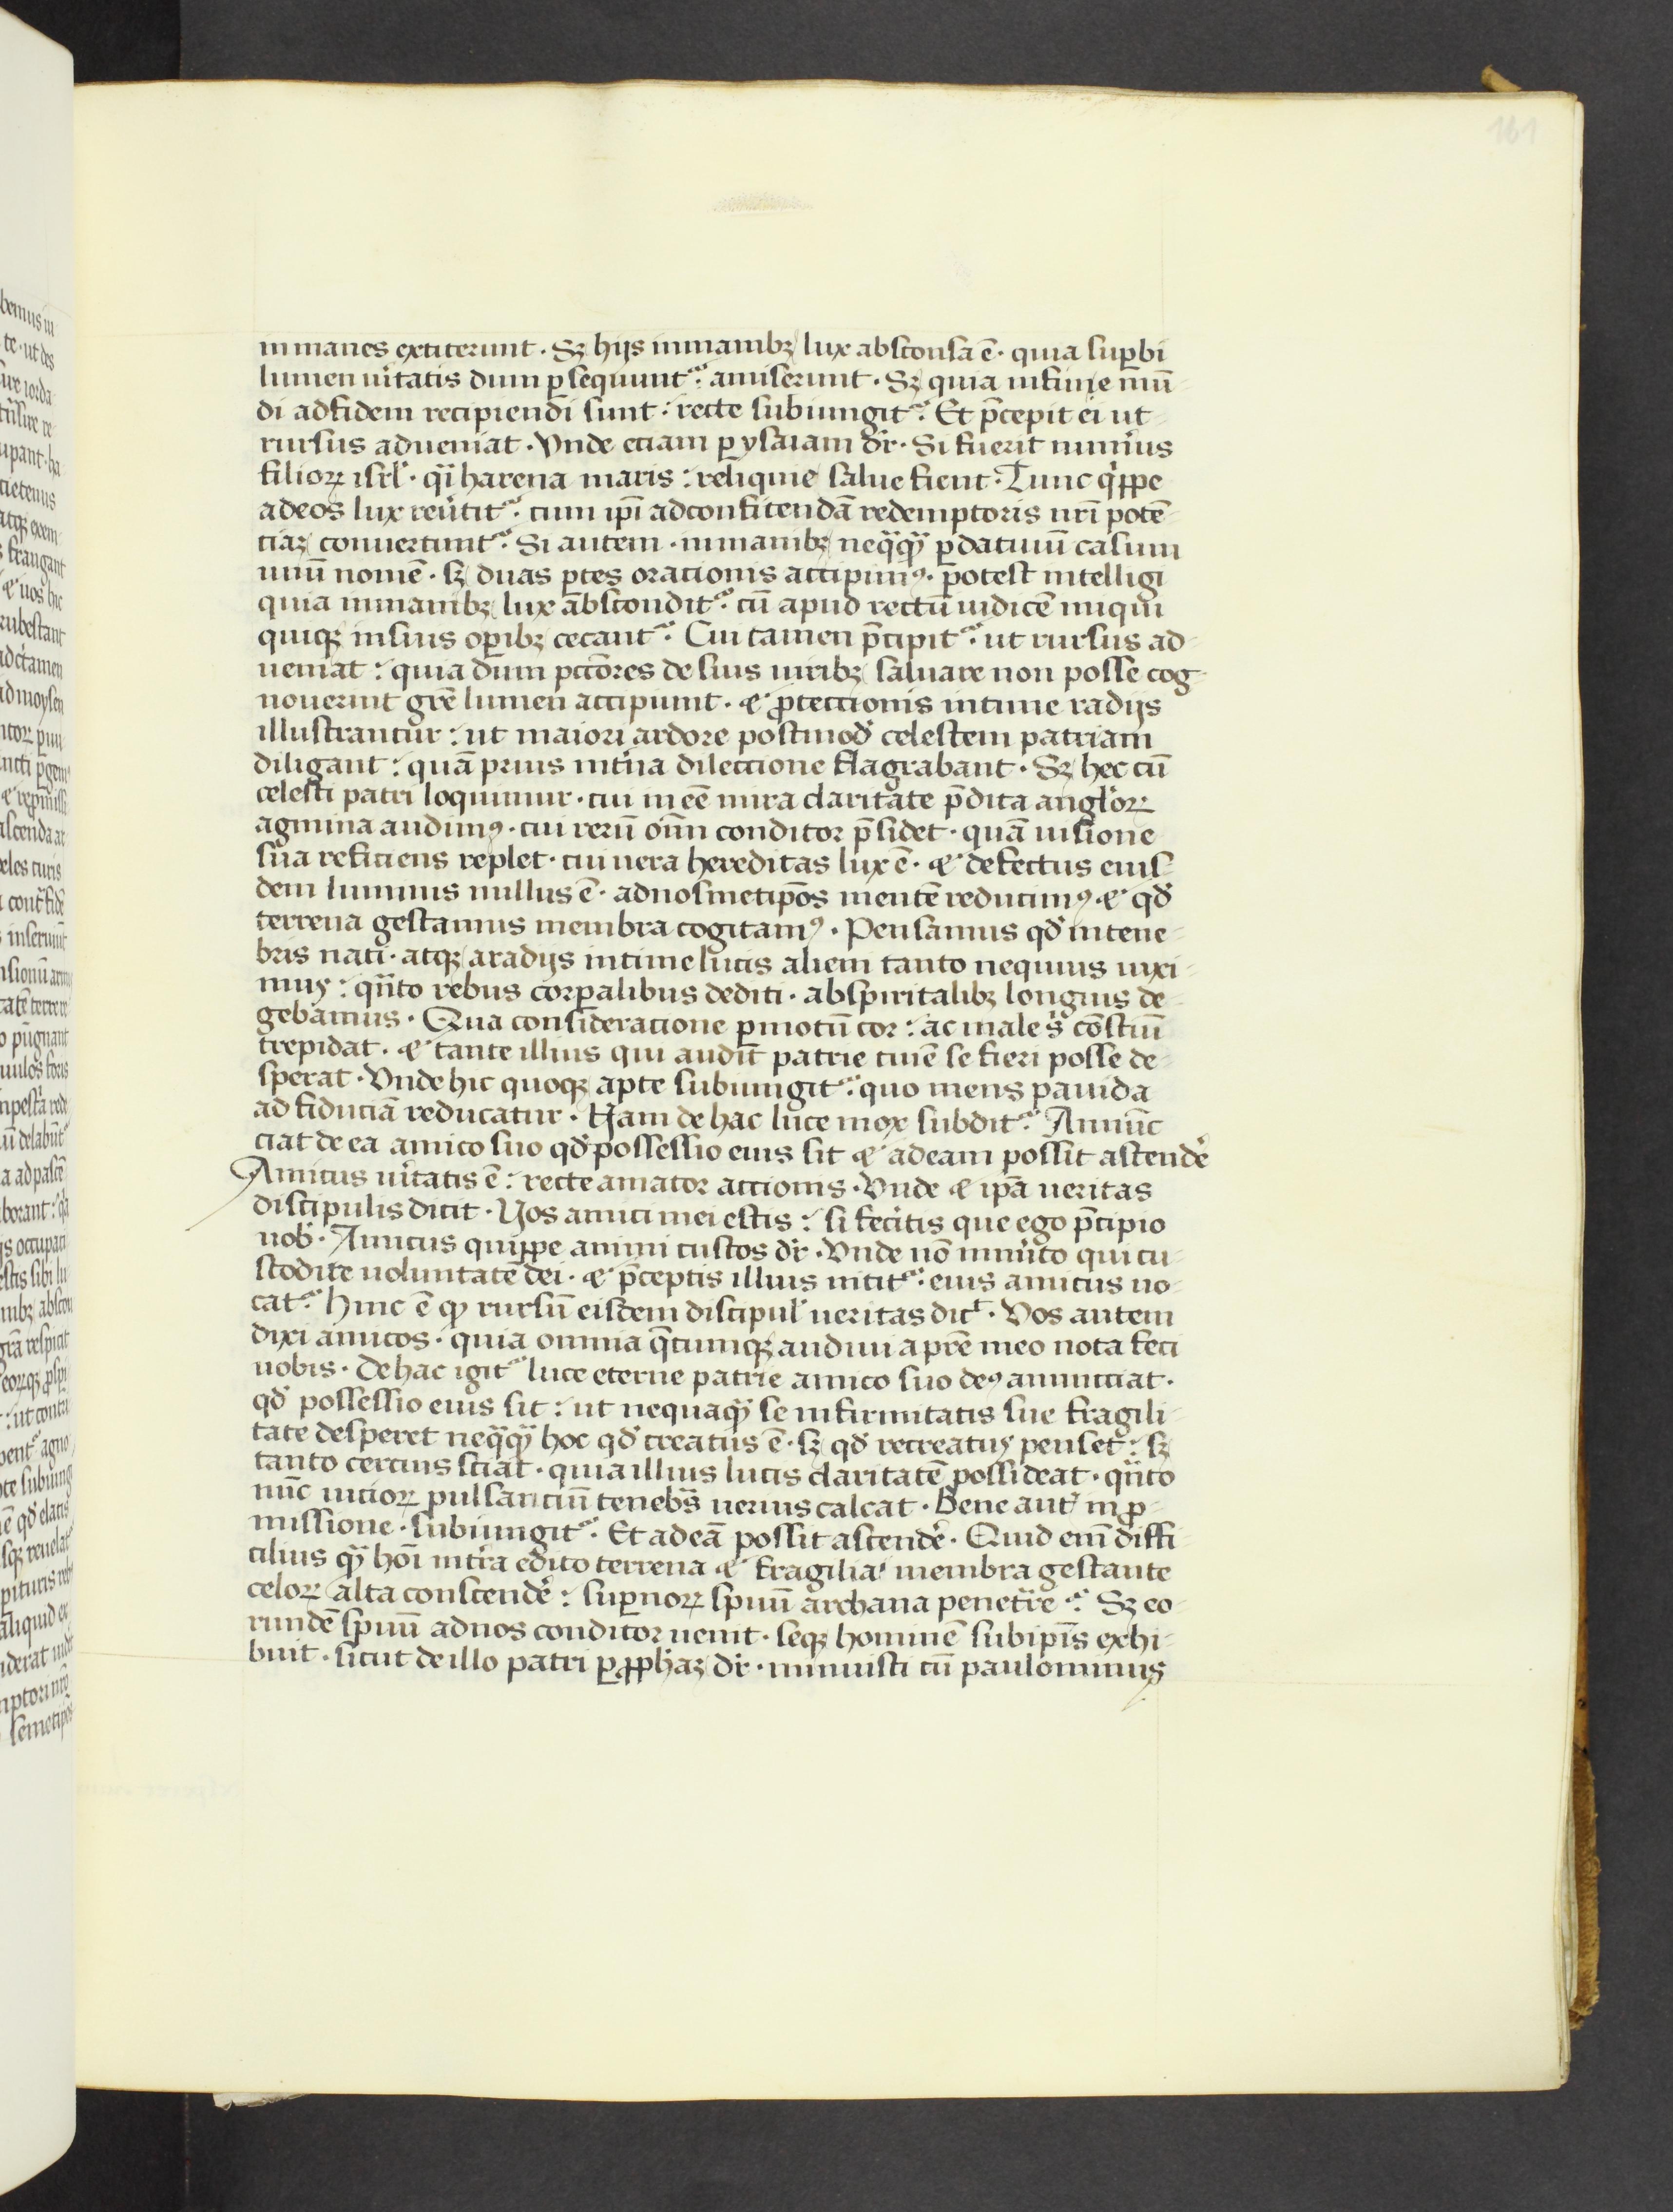 161
inmanes extiterunt · Sʒ hijs inmanibʒ lux absconsa ē · quia suꝑbi
lumen uītatis dum ꝑsequunt᷑ amiserunt · Sʒ quia infine mū-
di adfidem recipiendi sunt : recte subiungit᷑ Et p̄cepit ei ut
rursus adueniat · Vnde eciam ꝑ ysaiam dr̄ · Si fuerit numus
filioꝝ isrl̄ · qͣi harena maris : reliquie salue fient · Tunc qͥppe
adeos lux reūtit᷑ cum ip̄i adconfitendā redemptoris nr̄i potē-
ciaʒ conuertunt᷑ Si autem · inmanibʒ neqͣqͣ ꝑ datiuū casum
unū nomē · sʒ duas ꝑtes oracionis accipimꝰ · potest intelligi
quia inmanibʒ lux abscondit᷑ cū apud rectū iudicē iniqui
quiqʒ insuis oꝑibʒ cecant᷑ Cui tamen p̄cipit᷑ ut rursus ad-
ueniat : quia dum pcc̄ores de suis uiribʒ saluare non posse cog-
nouerint gr̄e lumen accipiunt · ⁊ ꝓteccionis intime radijs
illustrantur : ut maiori ardore postmod̄ celestem patriam
diligant : quā prius int̄na dileccione flagrabant · Sʒ hec cū
celesti patri loquimur · cui inēe mira claritate p̄dita angl̄oꝝ
agmina audimꝰ · cui rerū oīm conditor p̄sidet · quā uisione
sua reficiens replet · cui uera hereditas lux ē · ⁊ defectus eius-
dem luminis nullus ē · adnosmetip̄os mentē reducimꝰ ⁊ qd̄
terrena gestamus membra cogitamꝰ · Pensamus qd̄ intene-
bris nati · atqʒ aradijs intime lucis alieni tanto nequius uixi-
mus : qͣnto rebus corꝑalibus dediti · abspiritalibʒ longius de-
gebamus · Qua consideracione ꝑmotū cor : ac male sͥ cōsciū
trepidat · ⁊ tante illius qui audit patrie ciuē se fieri posse de-
sperat · Vnde hic quoqʒ apte subiungit᷑ quo mens pauida
ad fiduciā reducatur · Nam de hac luce mox subdit᷑ Annūc
ciat de ea amico suo qd̄ possessio eius sit ⁊ adeam possit ascendē
Amicus uītatis ē : recte amator accionis · Vnde ⁊ ip̄a ueritas
discipulis dicit · Vos amici mei estis : si fecitis que ego p̄cipio
uob̄ · Amicus quippe animi custos dr̄ · Vnde nō inmīto qui cu-
stodire uoluntatē dei · ⁊ p̄ceptis illius nitit᷑ eius amicus uo-
cat᷑ hinc ē ꝙ rursū eisdem discipul̄ ueritas dicͭ · Vos autem
dixi amicos · quia omnia qͣcumqʒ audiui a pr̄e meo nota feci
uobis · de hac igit᷑ luce eterne patrie amico suo deꝰ annunciat ·
qd̄ possessio eius sit : ut nequaqͣ se infirmitatis sue fragili-
tate desperet neqͣqͣ hoc qd̄ creatus ē · sʒ qd̄ recreatus penset : sʒ
tanto cercius sciat · quia illius lucis claritatē possideat · qͣnto
nūc uicioꝝ pulsanciū tenebͣs uerius calcat · Bene aut̄ inꝓ-
missione · subiungit᷑ Et adeā possit ascendē · Quid em̄ diffi-
cilius qͣ hōi int̄ra edito terrena ⁊ fragilia membra gestante
celoꝝ alta conscendē : suꝑnoꝝ sp̄iuū archana penetͣre ᷑ Sʒ eo-
rundē sp̄iuū adnos conditor uenit · seqʒ hominē subip̄is exhi-
buit · sicut de illo patri ꝑ ꝓphaʒ dr̄ · minuisti eū paulominus